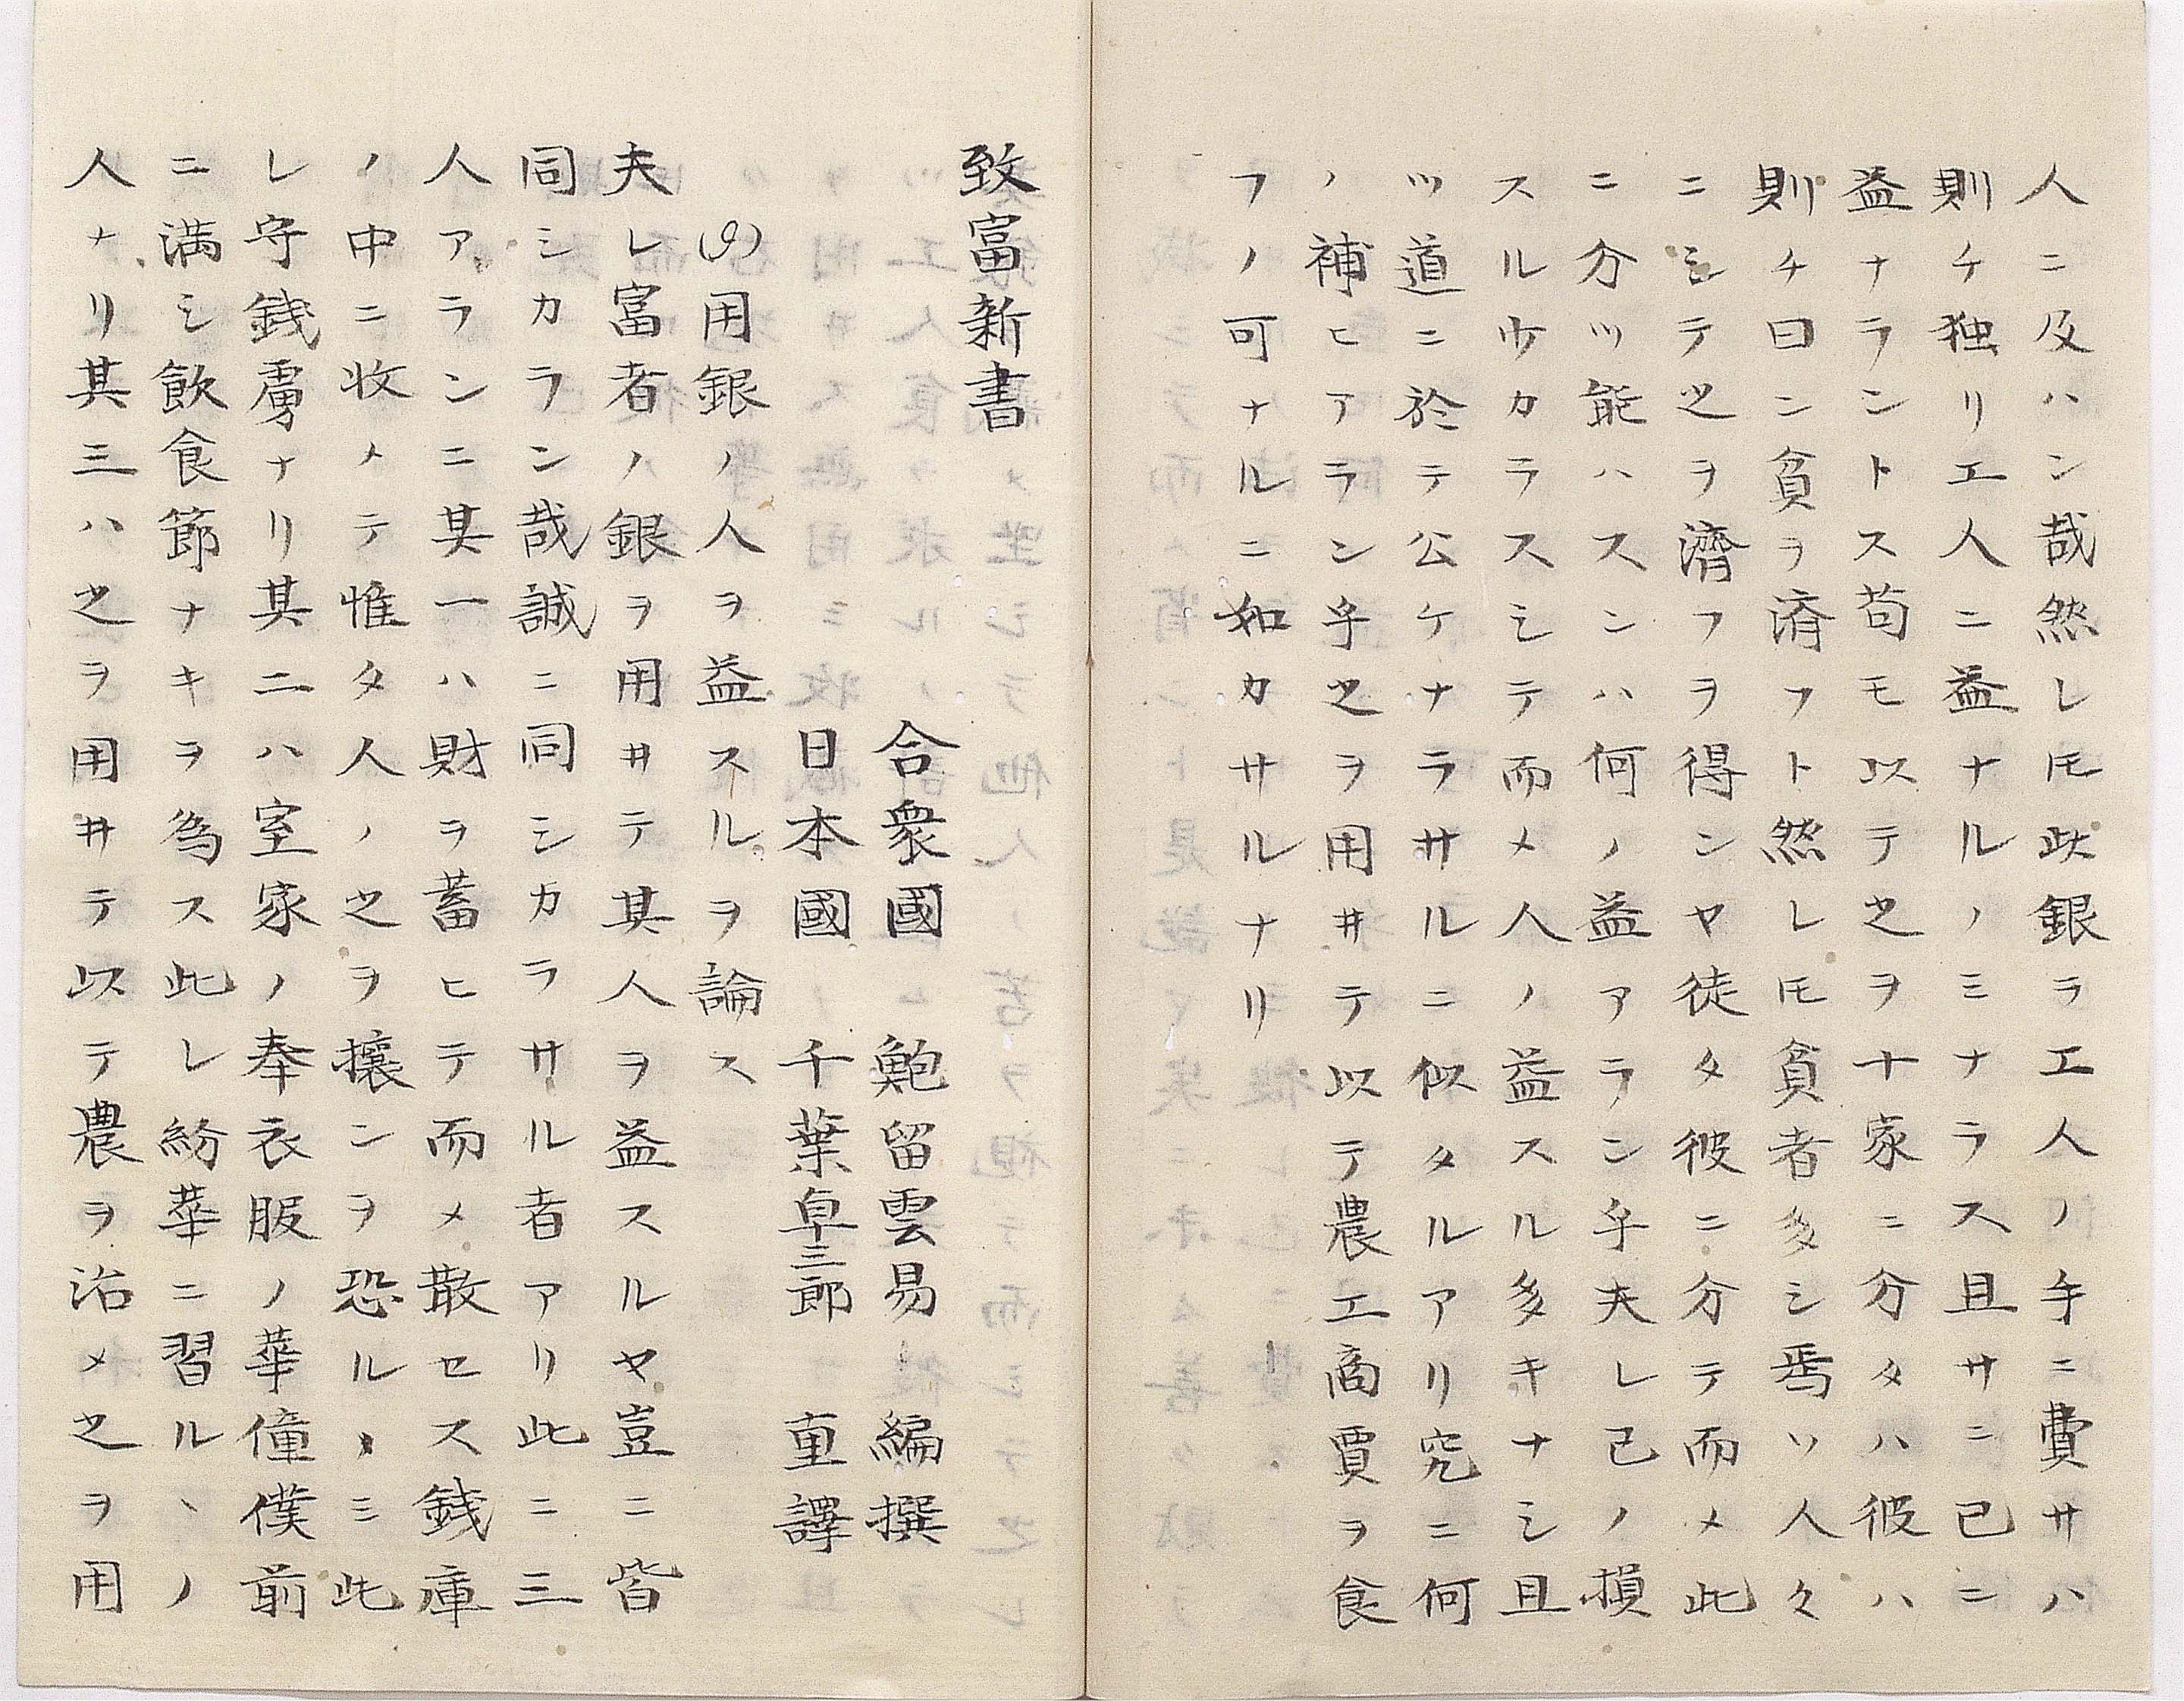 人ニ及ハン哉然レ𪜈此銀ヲエ人ノ手ニ費サハ
則チ独リエ人ニ益ナルノミナラス且サニ己ニ
益ナラントス苟モ以テ之ヲ十家ニ分タハ彼ハ
則チ曰ン貧ヲ済フト然レ𪜈貧者多シ焉ソ人々
ニシテ之ヲ濟フヲ得ンヤ徒タ彼ニ分テ而メ此
ニ分ツ能ハスンハ何ノ益アラン乎夫レ己ノ損
スルヿカラスシテ而メ人ノ益スル多キナシ且
ツ道ニ於テ公ケナラサルニ似タルアリ究ニ何
ノ補ヒアラン乎之ヲ用井テ以テ農工商賈ヲ食
フノ可ナルニ如カサルナリ
致富新書
合衆國 鮑留雲易 編撰
日本國 千葉卓三郎 重譯
用銀ノ人ヲ益スルヲ論ス
夫レ富者ノ銀ヲ用井テ其人ヲ益スルヤ豈ニ皆
同シカラン哉誠ニ同シカラサル者アリ此ニ三
人アランニ其一ハ財ヲ蓄ヒテ而メ散セス銭庫
ノ中ニ收メテ惟タ人ノ之ヲ攘ンヲ恐ルヽミ此
レ守銭虜ナリ其二ハ室家ノ奉衣服ノ華僮僕前
ニ満シ飲食節ナキヲ為ス此レ紛華ニ習ルヽノ
人ナリ其三ハ之ヲ用井テ以テ農ヲ治メ之ヲ用